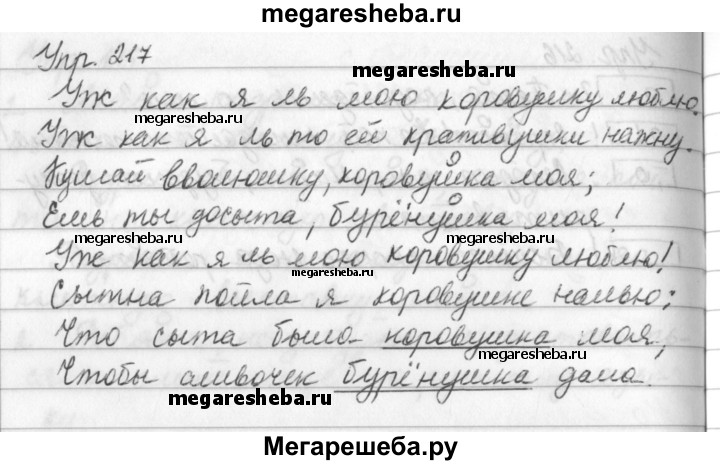 megaresheba.ru
Упр. 217
megaresheba.ru
Уж как я ль мою коровушку люблю.
megaresheba.ru
Уж как я ль то ей крапивушки нажну.
megaresheba.ru
Кушай вволюшку, коровушка моя;
Ешь ты досыта, бурёнушка моя!
megaresheba.ru megaresheba.ru
Уж как я ль мою коровушку люблю!
megaresheba.ru
Сытна пойла я коровушке налью;
Что сыта была коровушка моя,
megaresheba.ru
Чтобы сливочек бурёнушка дала.
megaresheba.ru
Мегарешеба.ру